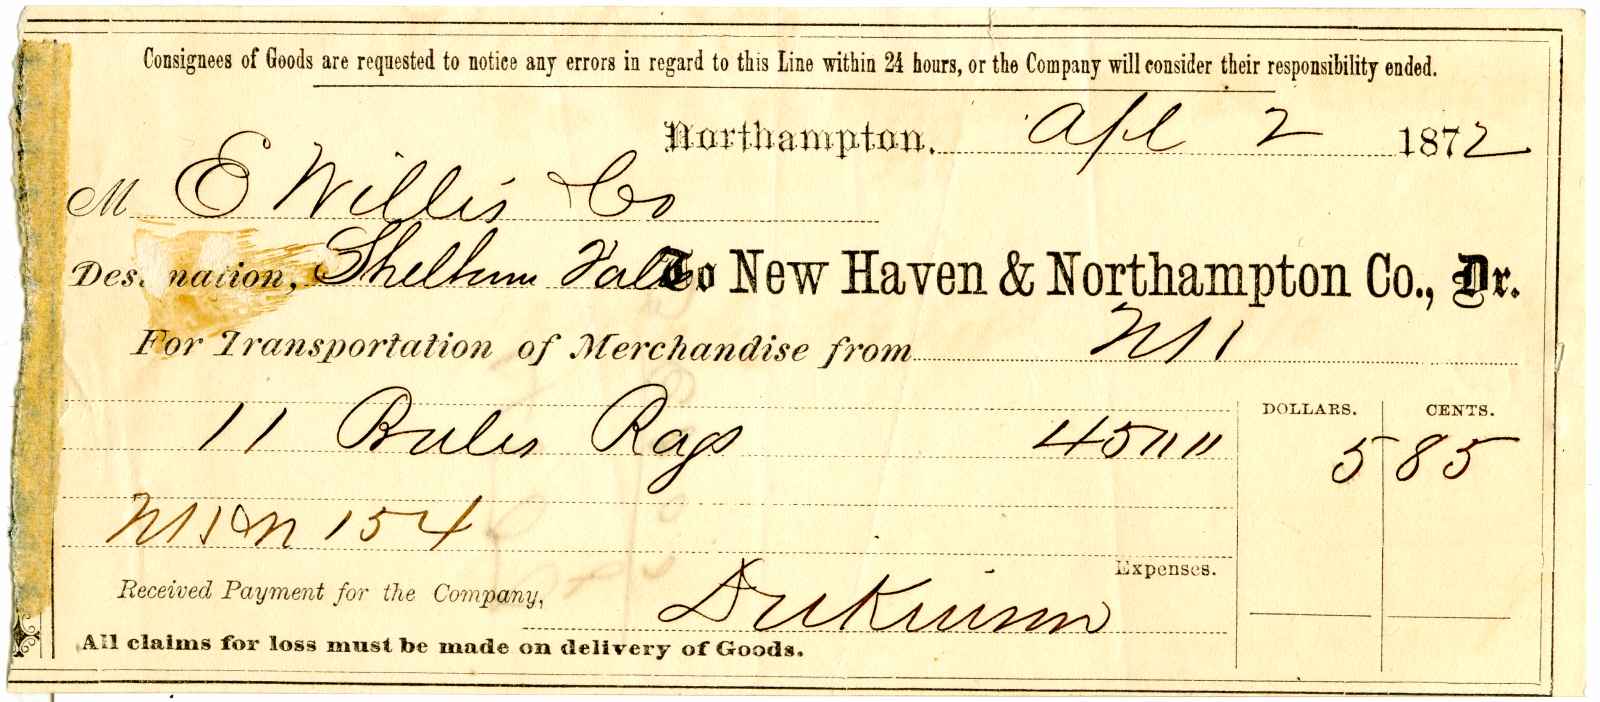 Consignees of Goods are requested to notice any errors in regard to this Line within 24 hours, or the Company will consider their responsibility ended.
Northampton, Apl 2 1872
M E Willis Co
Destination, Shelburn Falls To New Haven & Northampton Co., Dr.
For Transportation of Merchandise from
DOLLARS. CENTS.
11 Bales Rags 4500 5 85
154
Expenses.
Received Payment for the Company, Dickinson
All claims for loss must be made on delivery of Goods.